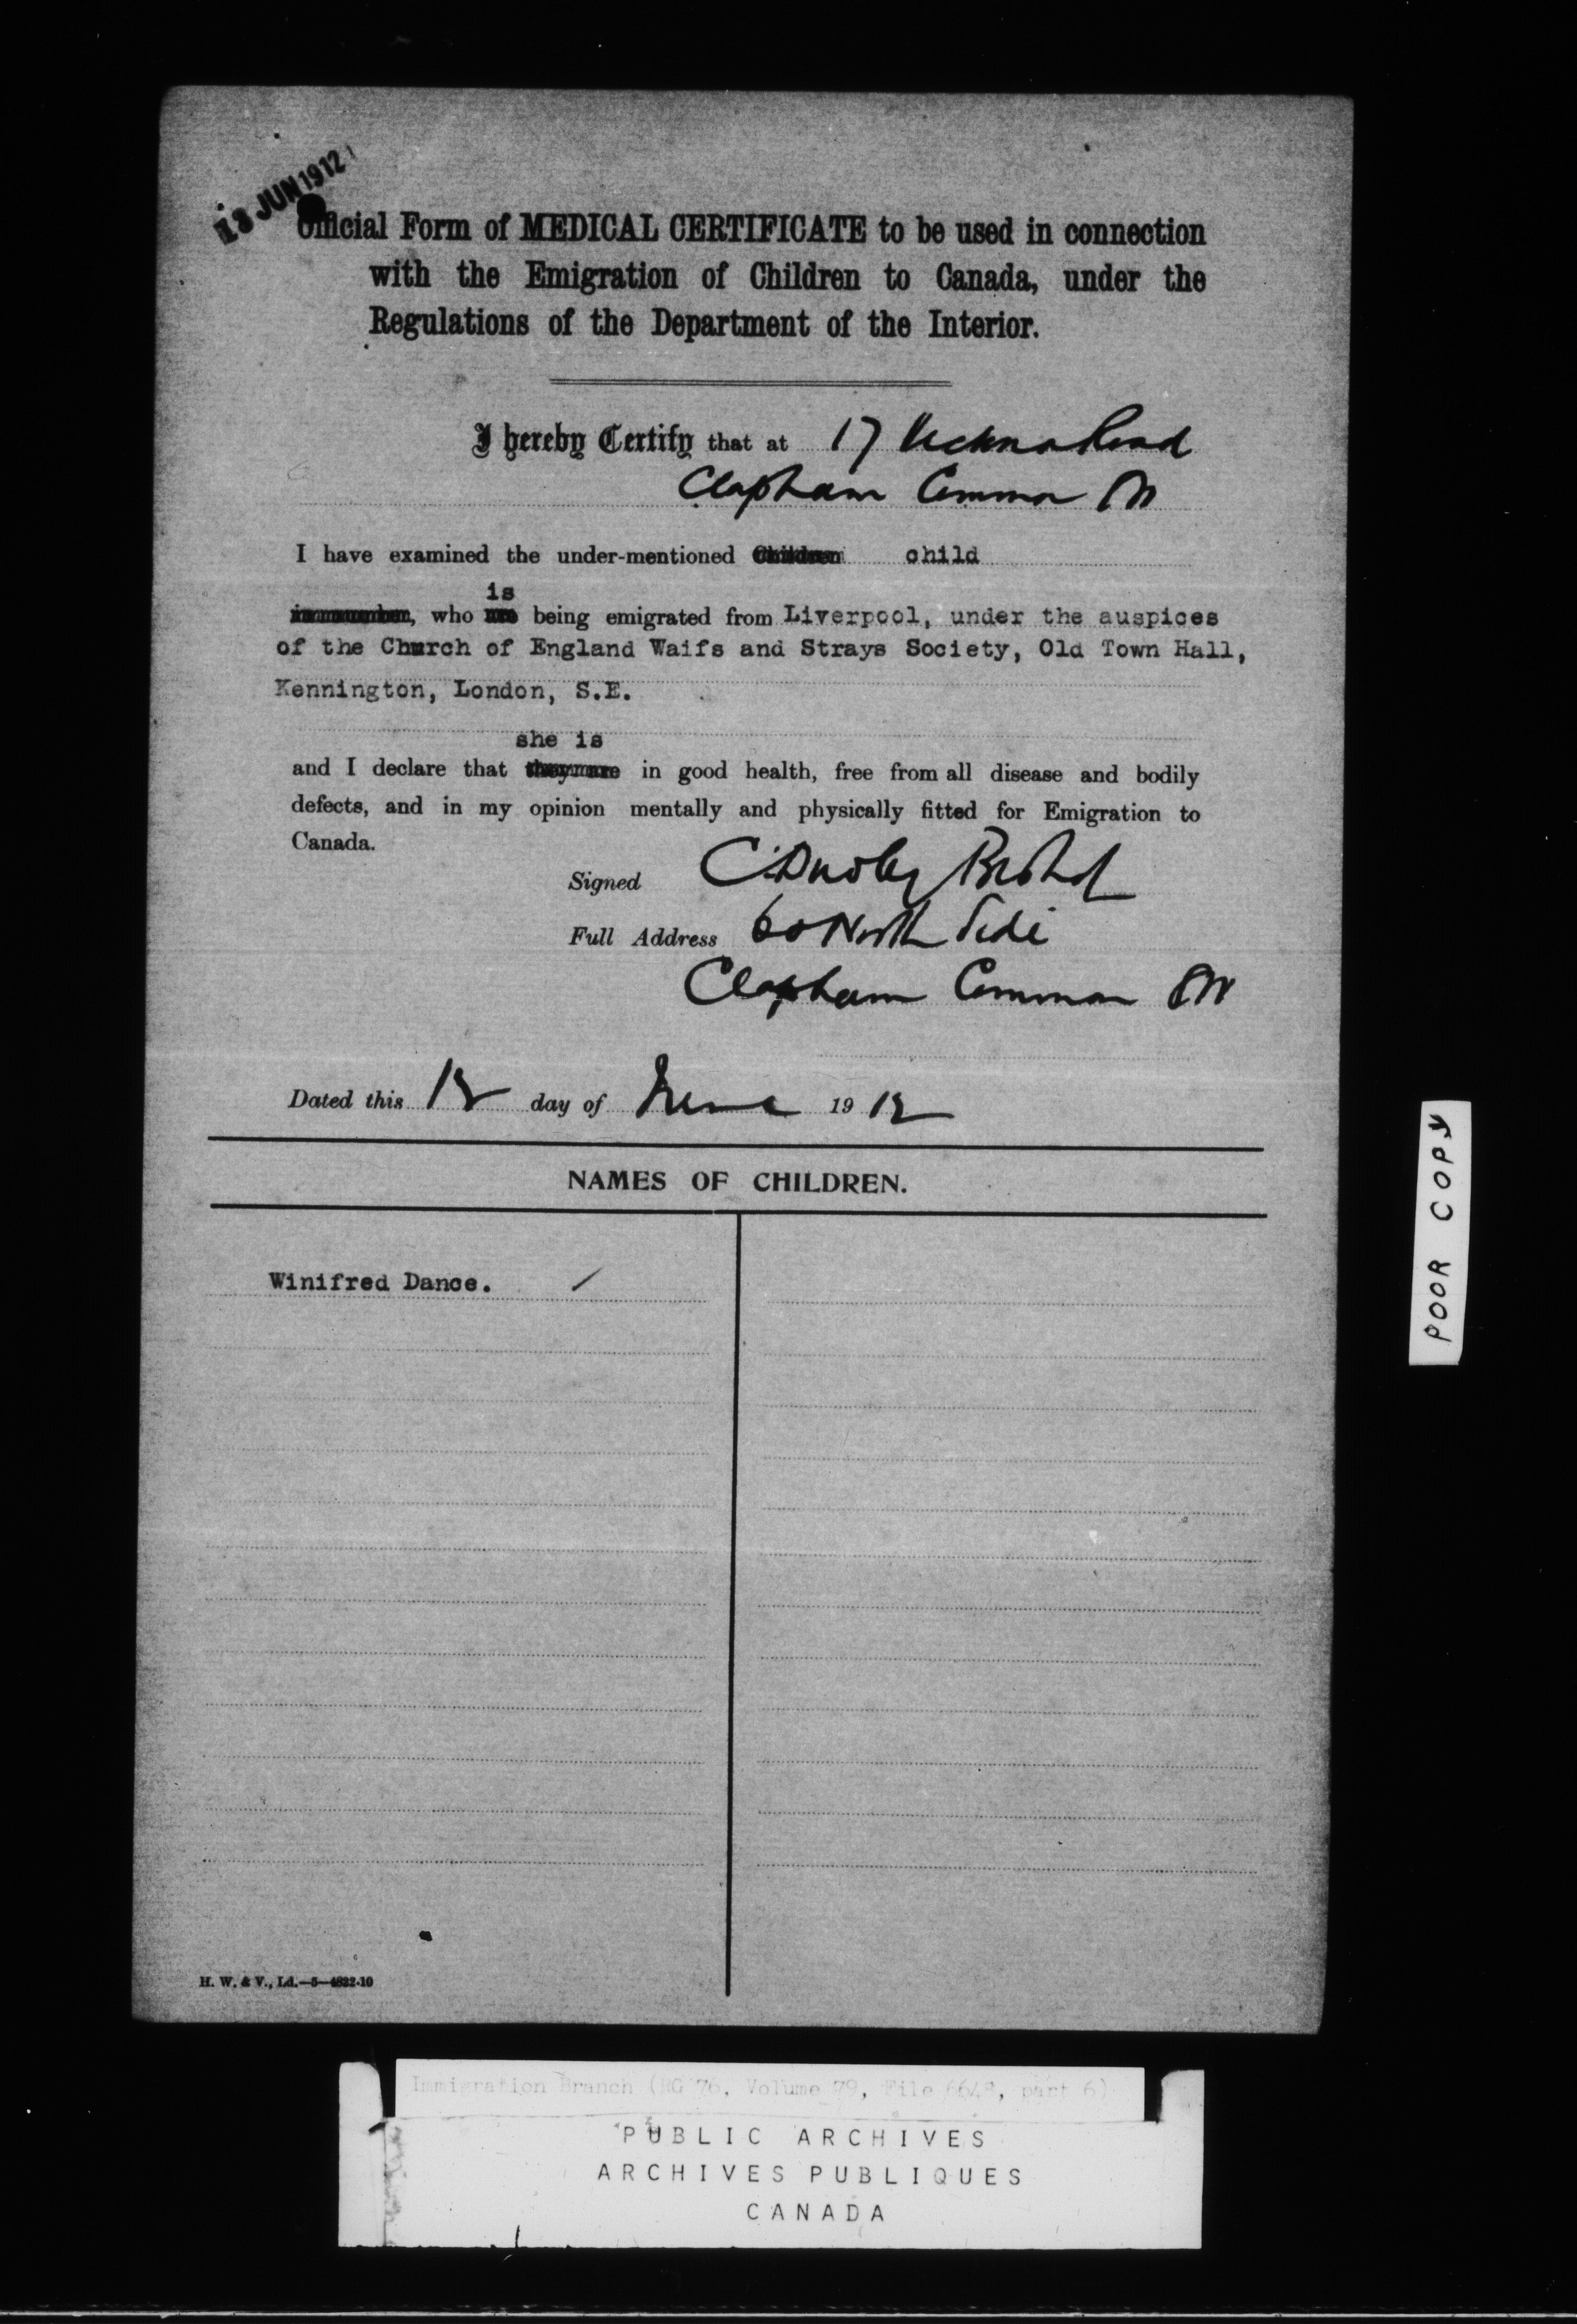 18 JUN 1912
Official Form of MEDICAL CERTIFICATE to be used in connection
with the Emigration of Children to Canada, under the
Regulations of the Department of the Interior.
I hereby Certify that at 17 Road
Clapham Common SW
I have examined the under-mentioned Children child
is
in number, who are being emigrated from Liverpool, under the auspices
of the Church of England Waifs and Strays Society, Old Town Hall,
Kennington, London, S.E.
she is
and I declare that they are in good health, free from all disease and bodily
defects, and in my opinion mentally and physically fitted for Emigration to
Canada.
Signed C. Dudley
Full Address 60 North Side
Clapham Common SW
Dated this 12 day of June 1912
NAMES OF CHILDREN.
Winifred Dance.
H. W. & V., Ld.—5—4832-10
POOR COPY
Immigration Branch (RG 76, Volume 79, File 6648, part 6)
PUBLIC ARCHIVES
ARCHIVES PUBLIQUES
CANADA